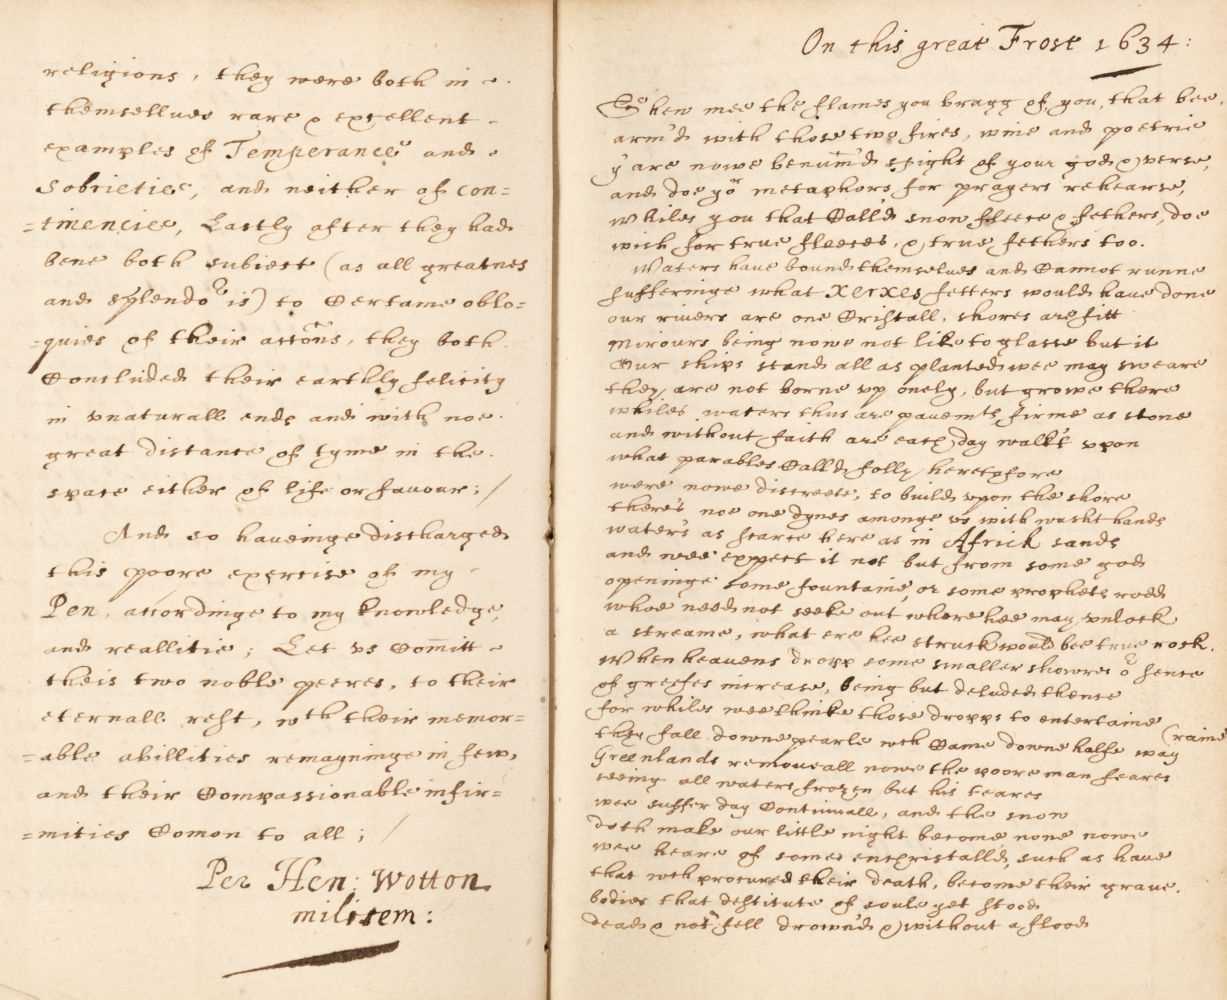 religions, they were both in
themsellves rare & excellent
examples of Temperance and
Sobrietie, and neither of con=
=tinencie, Lastly after they had
bene both subiect (as all greatnes
and splendor is) to Certaine oblo=
=quies of their actons, they both
Concluded their earthly felicity
in vnaturall ends and with noe
great distance of tyme in the
space either of life or fauour; /
And so haueinge discharged
this poore exercise of my
Pen, accordinge to my knowledge,
and reallitie; Let vs Comitt
theis two noble peeres, to their
eternall rest, wth their memor=
=able abillities remayninge in few,
and their Compassionable infir=
=mities Comon to all; /
Per Hen: Wotton
militem:
On this great Frost 1634:
Shew mee the flames you bragg of, you, that bee
arm'd with those two fires, wine and poetrie
y'are nowe benum'd spight of your god & verse,
and doe yor metaphors for prayers rehearse,
whiles you that Call'd snow fleece & fethers, doe
wish for true fleeces, & true fethers too.
Waters haue bound themselues and Cannot runne
sufferinge what Xerxes fetters would haue done
our riuers are one Cristall, shores are fitt
mirours being nowe not like to glasse but it
Our ships stand all as planted wee may sweare
they are not borne vp onely, but growe there
whiles waters thus are pauemts, firme as stone
and without faith are each day walk't vpon
what parables Call'd folly heretofore
were nowe discreete, to build vpon the shore
there's noe one dynes amonge vs with washt hands
water's as scarce here as in Africk sands
and wee expect it not but from some god
openinge some fountaine, or some prophets rodd
whoe need not seeke out where hee may vnlock
a streame, what ere hee struck would bee true rock.
When heauens dropp some smaller showres or sence
of greefes increase, being but deluded thence
for whiles wee thinke those dropps to entertaine
they fall downe pearle wch Came downe halfe way (raine
Greenlands remoueall nowe the poore man feares
seeing all waters frozen but his teares
wee suffer day Continuall, and the snow
doth make our little night become none nowe
wee heare of some enchristalld, such as haue
that wch procured their death, become their graue.
bodies that destitute of soule yet stood
dead & not fell drown'd & without a flood